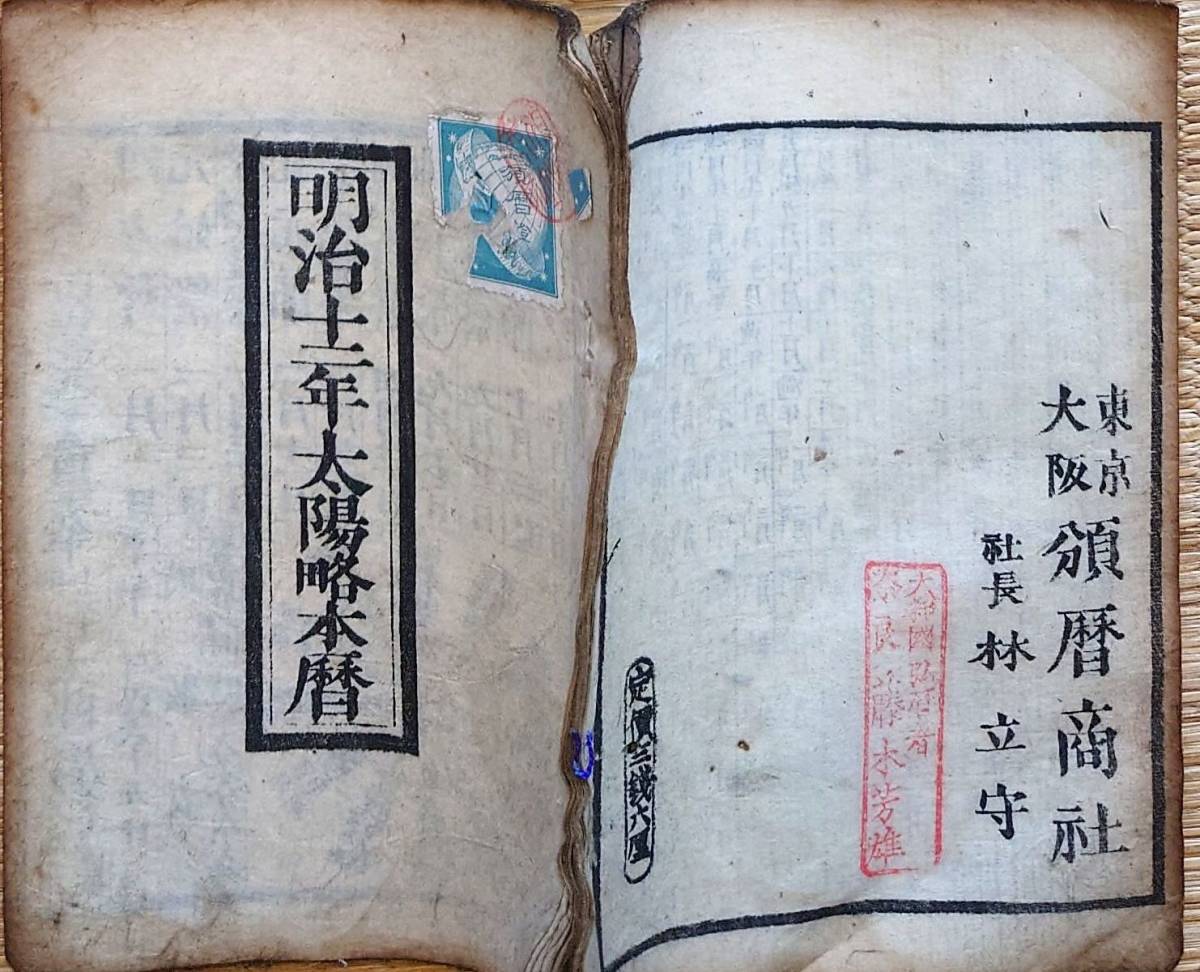 東京
大阪
頒暦商社
社長 林立守
藤木芳雄
定價三錢六厘
明治十二年太陽略本暦